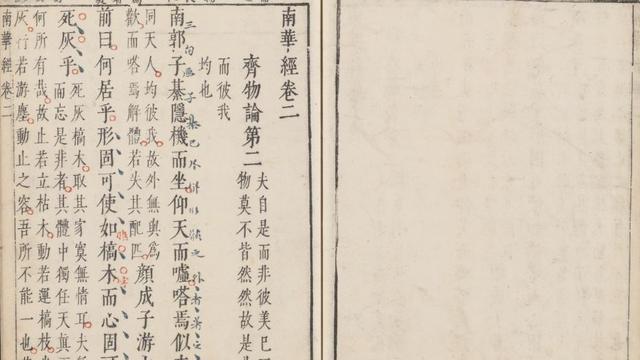 南華經卷二
齊物論第二
夫自是而非彼美已
物莫不皆然然故是
而彼我
均也
南郭子綦隱機而坐仰天而噓嗒焉似
同天人均彼我故外無與為
歡而嗒焉解體若失其配匹
顏成子游
前曰何居乎形固可使如槁木而心固可
死灰乎
死灰槁木取其寂寞無情耳夫
而忘是非者其體中獨任天真
何所有哉故止若立枯木動若運槁枝
灰行若游塵動止之容吾所不能一也
南華經卷二